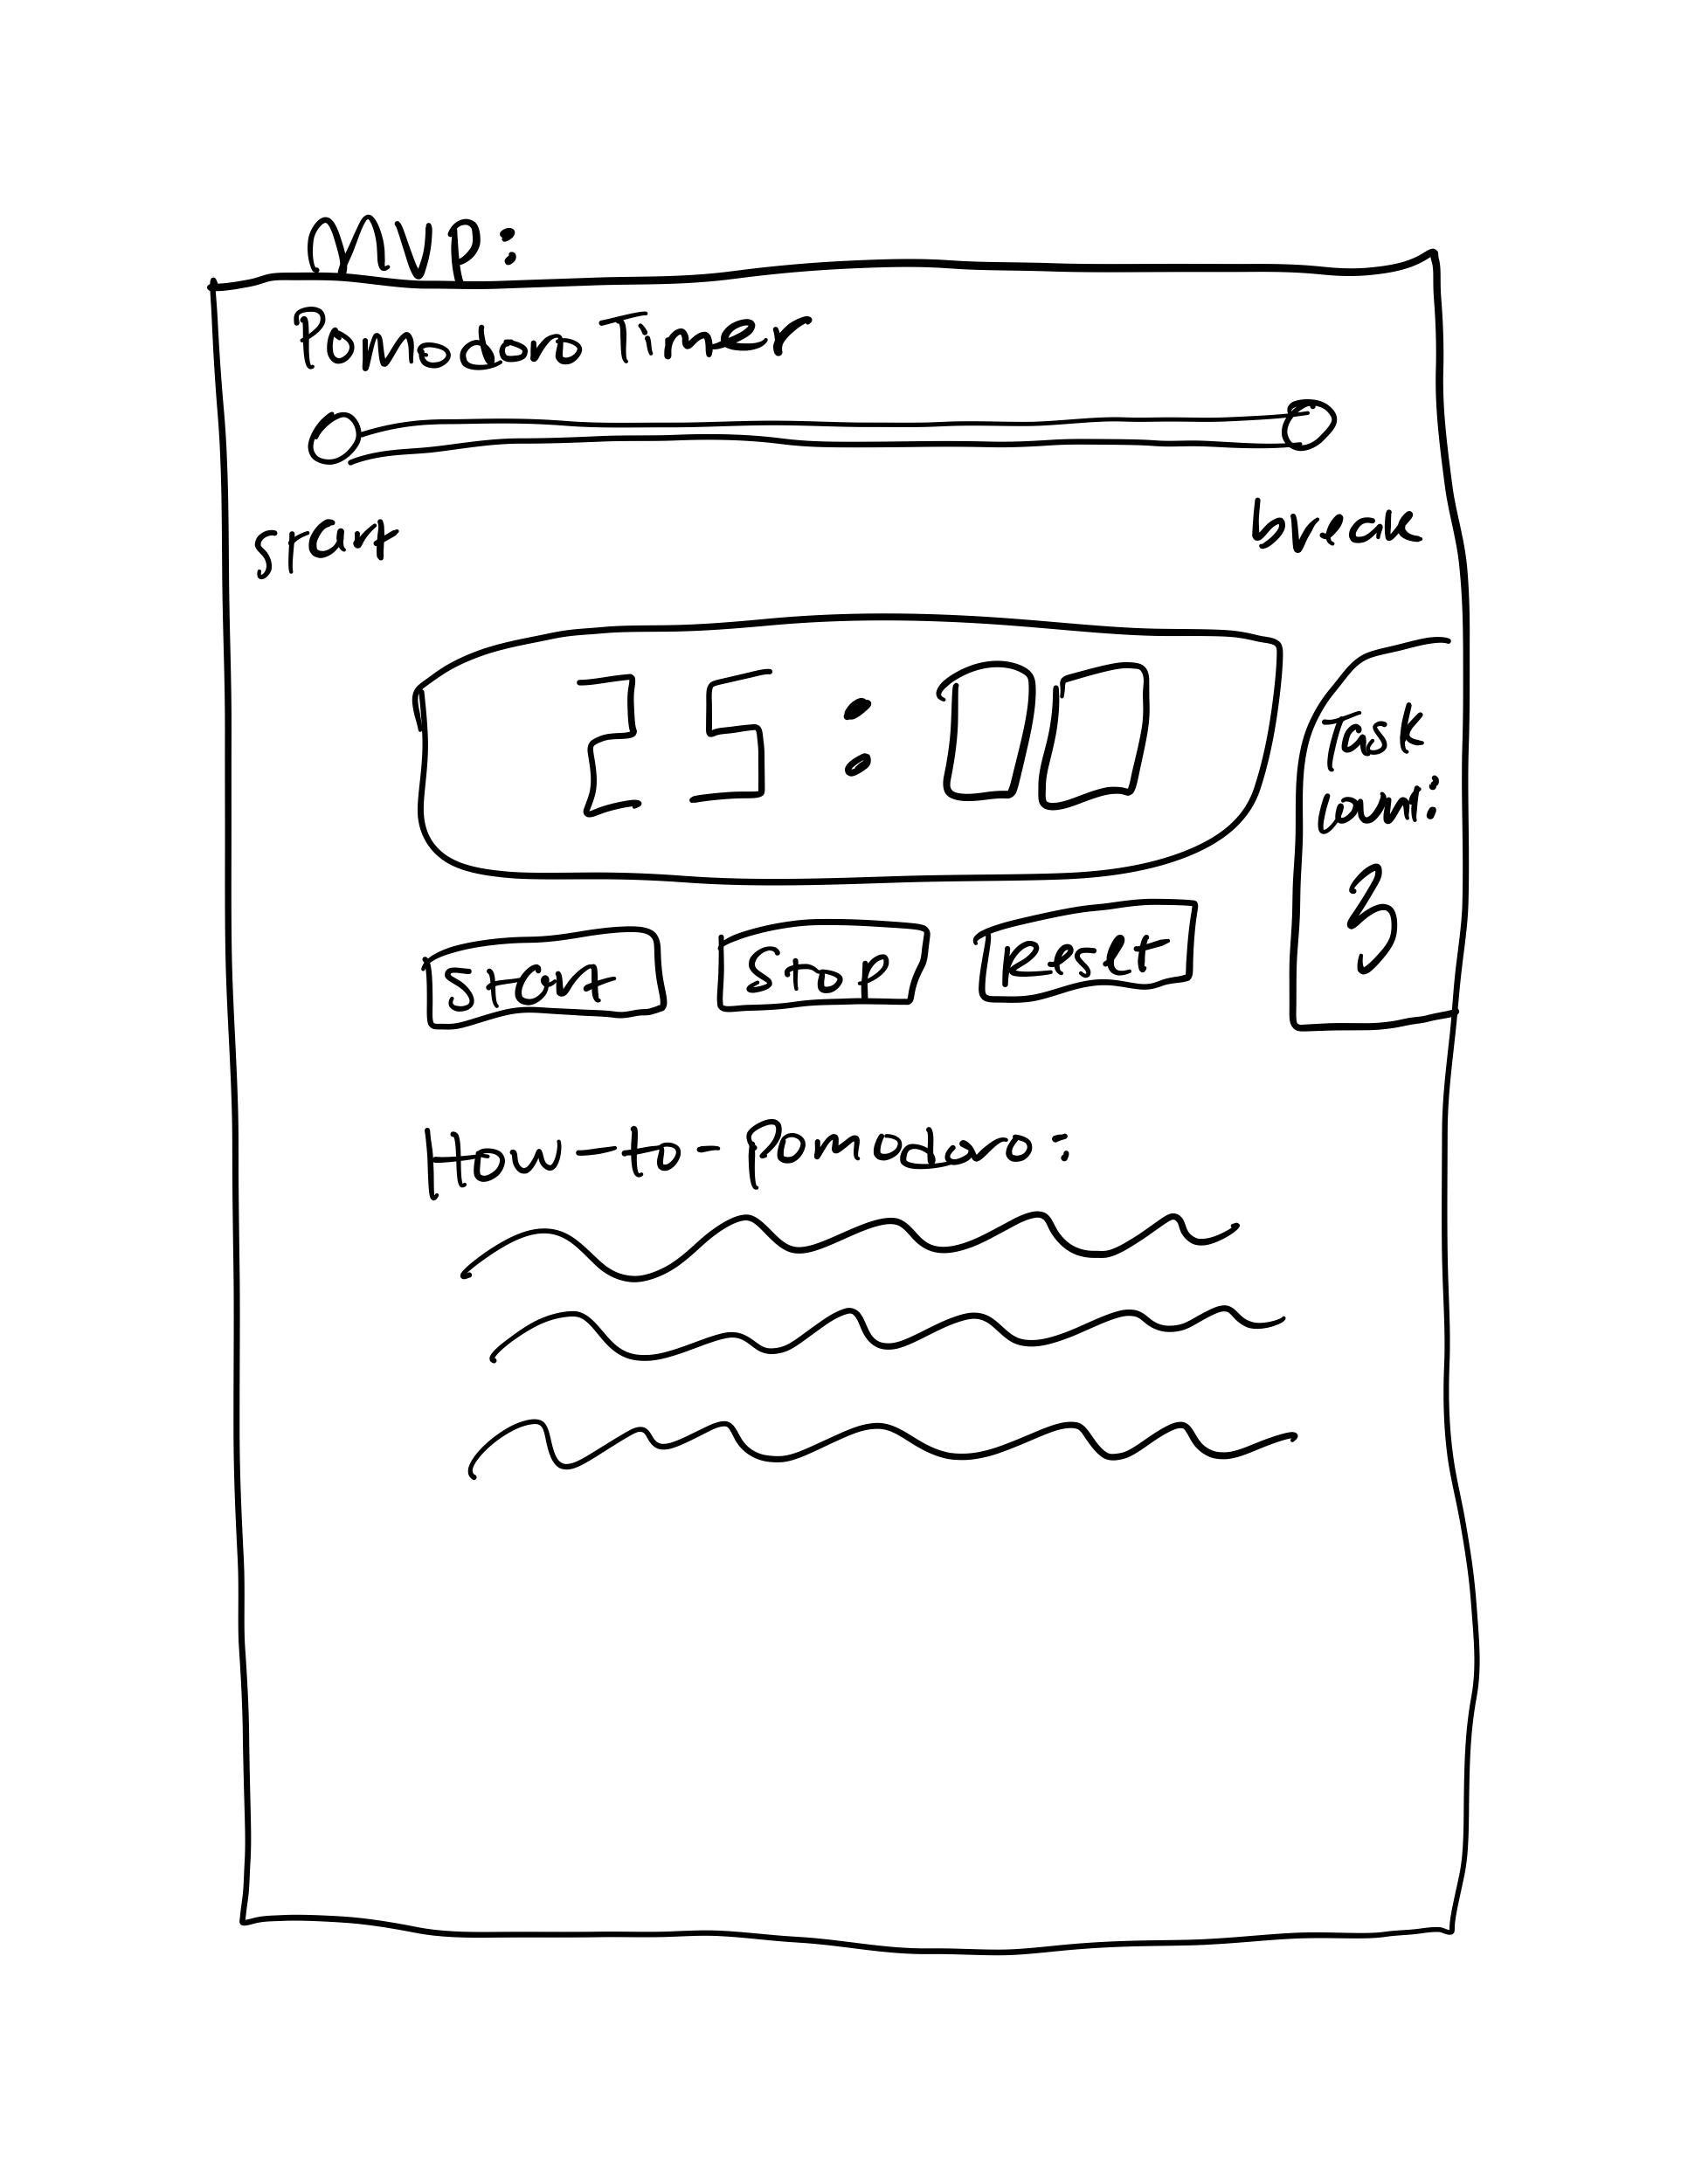 MVP:
Pomodoro Timer
start
break
25:00
Task
count:
3
Start
Stop
Reset
How-to-Pomodoro: